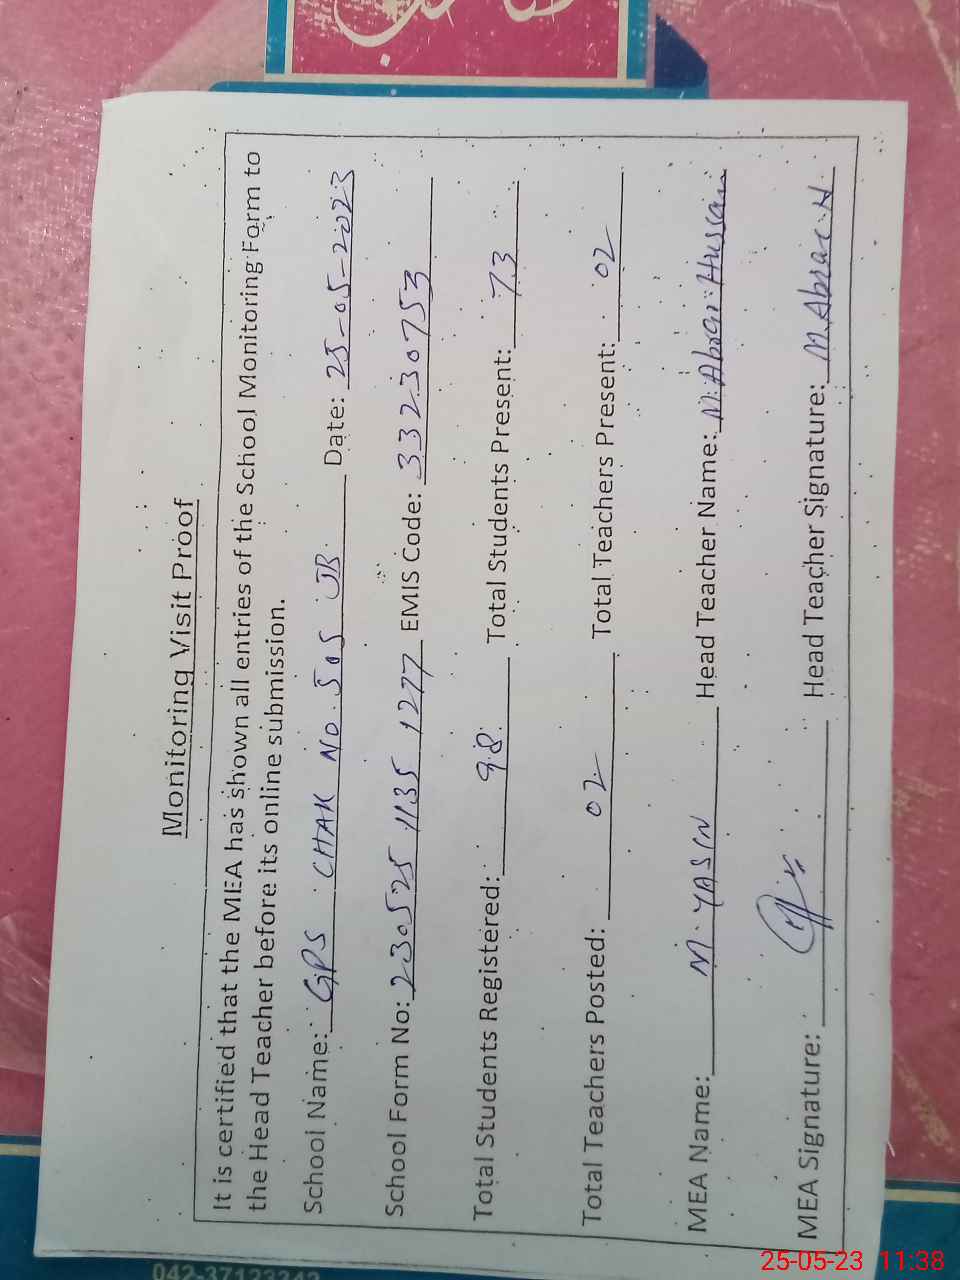 Monitoring Visit Proof
It is certified that the MEA has shown all entries of the School Monitoring Form to
the Head Teacher before its online submission.
School Name: GPS CHAK NO. 505 JB Date: 25-05-2023
School Form No: 230525 1135 1277 EMIS Code: 33230753
Total Students Registered: 98 Total Students Present: 73
Total Teachers Posted: 02 Total Teachers Present: 02
MEA Name: M. YASIN Head Teacher Name: M. Abrar Hussain
MEA Signature: Head Teacher Signature: M. Abrar. H
25-05-23 11:38